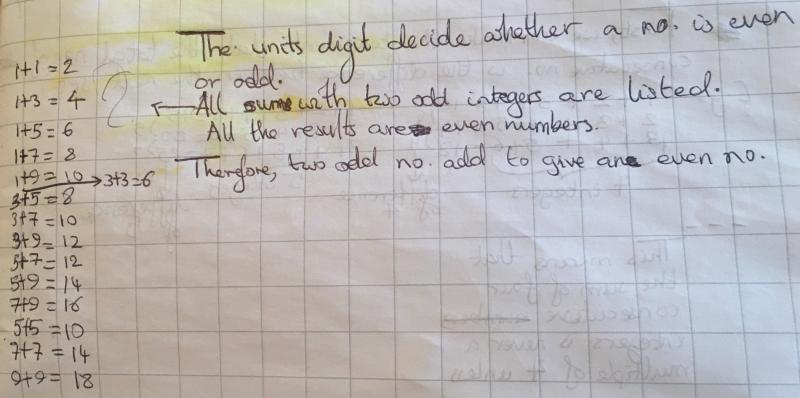 1+1 = 2
1+3 = 4
1+5 = 6
1+7 = 8
1+9 = 10 → 3+3=6
3+5 = 8
3+7 = 10
3+9 = 12
5+7 = 12
5+9 = 14
7+9 = 16
5+5 = 10
7+7 = 14
9+9 = 18
The units digit decide whether a no. is even
or odd.
← All sums with two odd integers are listed.
All the results are even numbers.
Therefore, two odd no. add to give an even no.